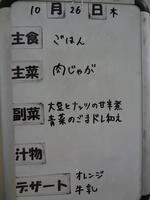 10月26日木
主食 ごはん
主菜 肉じゃが
副菜 大豆とナッツの甘辛煮
青菜のごまドレ和え
汁物
デザート オレンジ
牛乳